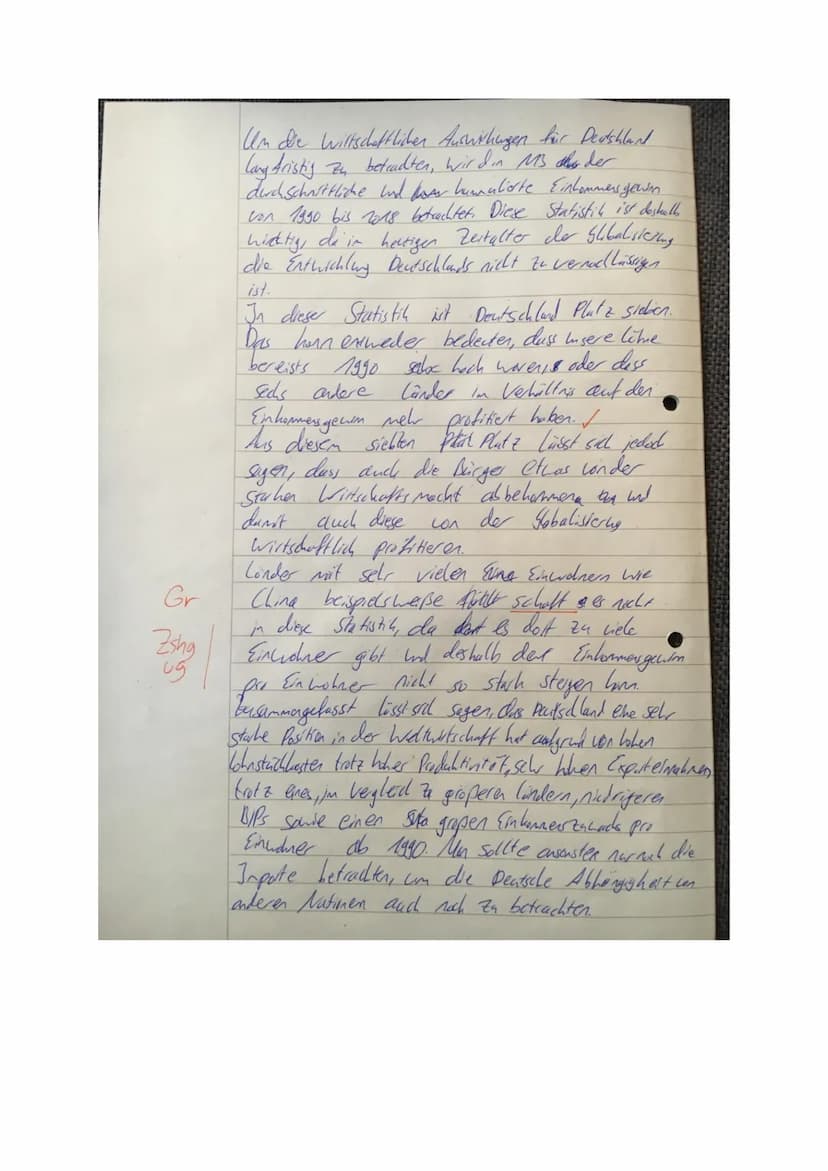 Um die wirtschaftlichen Auswirkungen für Deutschland
langfristig zu betrachten, wird in M3 der
durchschnittliche und kumulierte Einkommensgewinn
von 1990 bis 2018 betrachtet. Diese Statistik ist deshalb
wichtig, da im heutigen Zeitalter der Globalisierung
die Entwicklung Deutschlands nicht zu vernachlässigen
ist.
In dieser Statistik ist Deutschland Platz sieben.
Das kann entweder bedeuten, dass unsere Löhne
bereists 1990 sehr hoch waren, oder dass
sechs andere Länder im Verhältnis auf den
Einkommensgewinn mehr profitiert haben. ✓
Aus diesem siebten Platz lässt sich jedoch
sagen, dass auch die Bürger etwas von der
starken Wirtschaftsmacht abbekommen und
damit auch diese von der Globalisierung
wirtschaftlich profitieren.
Länder mit sehr vielen Einwohnern wie
Gr China beispielsweiße schaft es nicht
Zshg in diese Statistik, da es dort zu viele
ug Einwohner gibt und deshalb der Einkommensgewinn
pro Einwohner nicht so stark steigen kann.
Zusammengefasst lässt sich sagen, dass Deutschland eine sehr
starke Position in der Weltwirtschaft hat aufgrund von hohen
Lohnstückkosten trotz hoher Produktivität, sehr hohen Exporteinnahmen
trotz eines, im Vergleich zu größeren Ländern, niedrigeren
BIPs sowie einen großen Einkommenszuwachs pro
Einwohner ab 1990. Man sollte ansonsten nur noch die
Importe betrachten, um die Deutsche Abhängigkeit von
anderen Nationen auch noch zu betrachten.